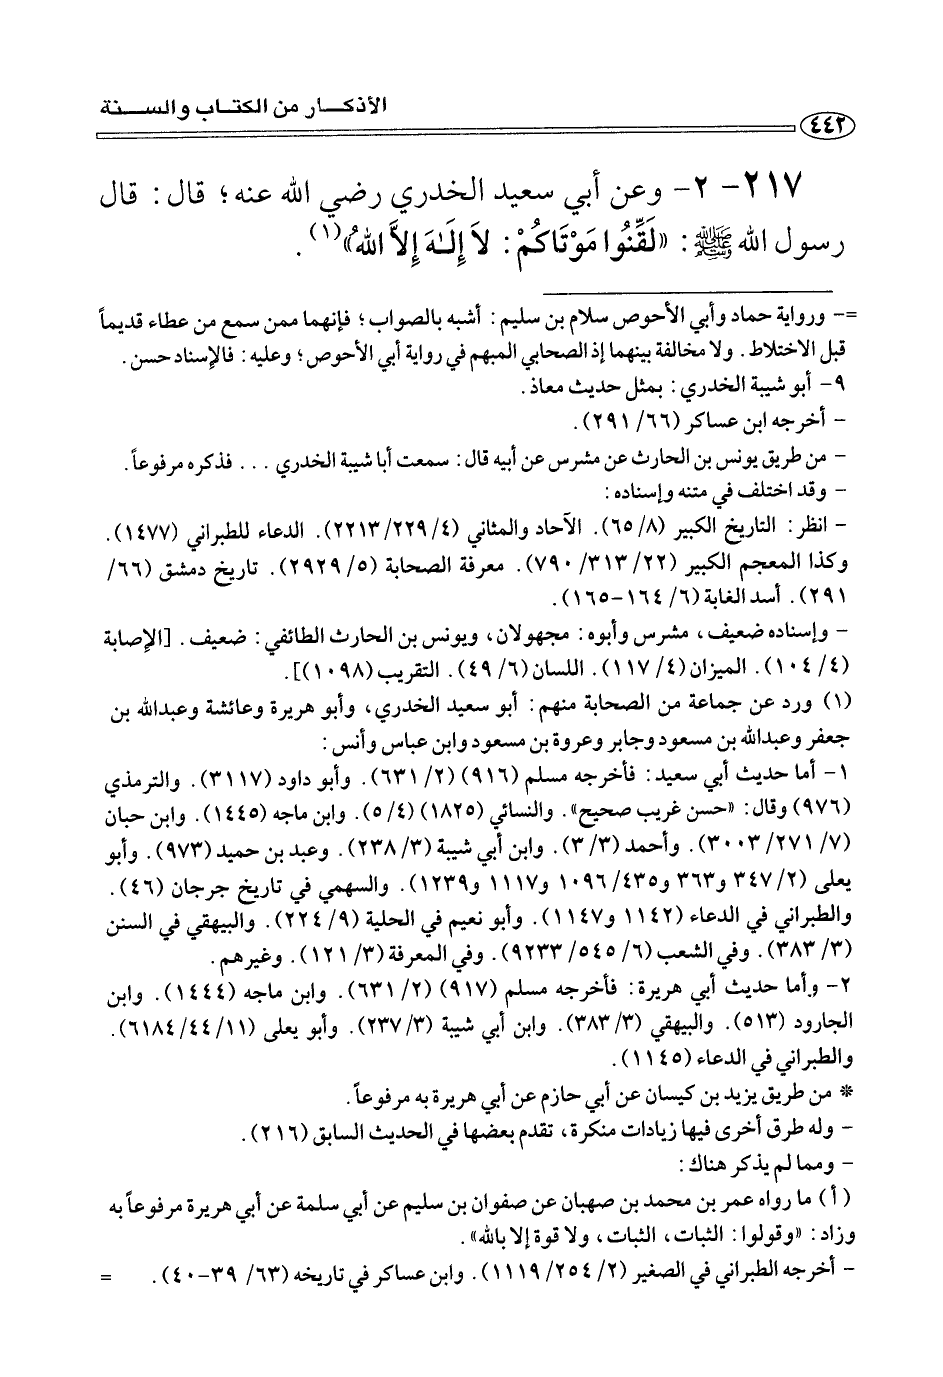 الأذكار من الكتاب والسنة
٤٤٢
٢١٧- ٢- وعن أبي سعيد الخدري رضي الله عنه؛ قال: قال
رسول الله ﷺ: «لَقِّنُوا مَوْتَاكُمْ: لاَ إِلَـٰهَ إِلاَّ اللهُ»(١).
=- ورواية حماد وأبي الأحوص سلام بن سليم: أشبه بالصواب؛ فإنهما ممن سمع من عطاء قديماً
قبل الاختلاط. ولا مخالفة بينهما إذ الصحابي المبهم في رواية أبي الأحوص؛ وعليه: فالإسناد حسن.
٩- أبو شيبة الخدري: بمثل حديث معاذ.
- أخرجه ابن عساكر (٦٦/ ٢٩١).
- من طريق يونس بن الحارث عن مشرس عن أبيه قال: سمعت أبا شيبة الخدري ... فذكره مرفوعاً.
- وقد اختلف في متنه وإسناده:
- انظر: التاريخ الكبير (٨/ ٦٥). الآحاد والمثاني (٤/ ٢٢٩/ ٢٢١٣). الدعاء للطبراني (١٤٧٧).
وكذا المعجم الكبير (٢٢/ ٣١٣/ ٧٩٠). معرفة الصحابة (٥/ ٢٩٢٩). تاريخ دمشق (٦٦/
٢٩١). أسد الغابة (٦/ ١٦٤-١٦٥).
- وإسناده ضعيف، مشرس وأبوه: مجهولان، ويونس بن الحارث الطائفي: ضعيف. [الإصابة
(٤/ ١٠٤). الميزان (٤/ ١١٧). اللسان (٦/ ٤٩). التقريب (١٠٩٨)].
(١) ورد عن جماعة من الصحابة منهم: أبو سعيد الخدري، وأبو هريرة وعائشة وعبدالله بن
جعفر وعبدالله بن مسعود وجابر وعروة بن مسعود وابن عباس وأنس:
١- أما حديث أبي سعيد: فأخرجه مسلم (٩١٦) (٢/ ٦٣١). وأبو داود (٣١١٧). والترمذي
(٩٧٦) وقال: «حسن غريب صحيح». والنسائي (١٨٢٥) (٤/ ٥). وابن ماجه (١٤٤٥). وابن حبان
(٧/ ٢٧١/ ٣٠٠٣). وأحمد (٣/ ٣). وابن أبي شيبة (٣/ ٢٣٨). وعبد بن حميد (٩٧٣). وأبو
يعلى (٢/ ٣٤٧ و٣٦٣ و٤٣٥/ ١٠٩٦ و١١١٧ و١٢٣٩). والسهمي في تاريخ جرجان (٤٦).
والطبراني في الدعاء (١١٤٢ و١١٤٧). وأبو نعيم في الحلية (٩/ ٢٢٤). والبيهقي في السنن
(٣/ ٣٨٣). وفي الشعب (٦/ ٥٤٥/ ٩٢٣٣). وفي المعرفة (٣/ ١٢١). وغيرهم.
٢- وأما حديث أبي هريرة: فأخرجه مسلم (٩١٧) (٢/ ٦٣١). وابن ماجه (١٤٤٤). وابن
الجارود (٥١٣). والبيهقي (٣/ ٣٨٣). وابن أبي شيبة (٣/ ٢٣٧). وأبو يعلى (١١/ ٤٤/ ٦١٨٤).
والطبراني في الدعاء (١١٤٥).
* من طريق يزيد بن كيسان عن أبي حازم عن أبي هريرة به مرفوعاً.
- وله طرق أخرى فيها زيادات منكرة، تقدم بعضها في الحديث السابق (٢١٦).
- ومما لم يذكر هناك:
(أ) ما رواه عمر بن محمد بن صهبان عن صفوان بن سليم عن أبي سلمة عن أبي هريرة مرفوعاً به
وزاد: «وقولوا: الثبات، الثبات، ولا قوة إلا بالله».
- أخرجه الطبراني في الصغير (٢/ ٢٥٤/ ١١١٩). وابن عساكر في تاريخه (٦٣/ ٣٩-٤٠). =